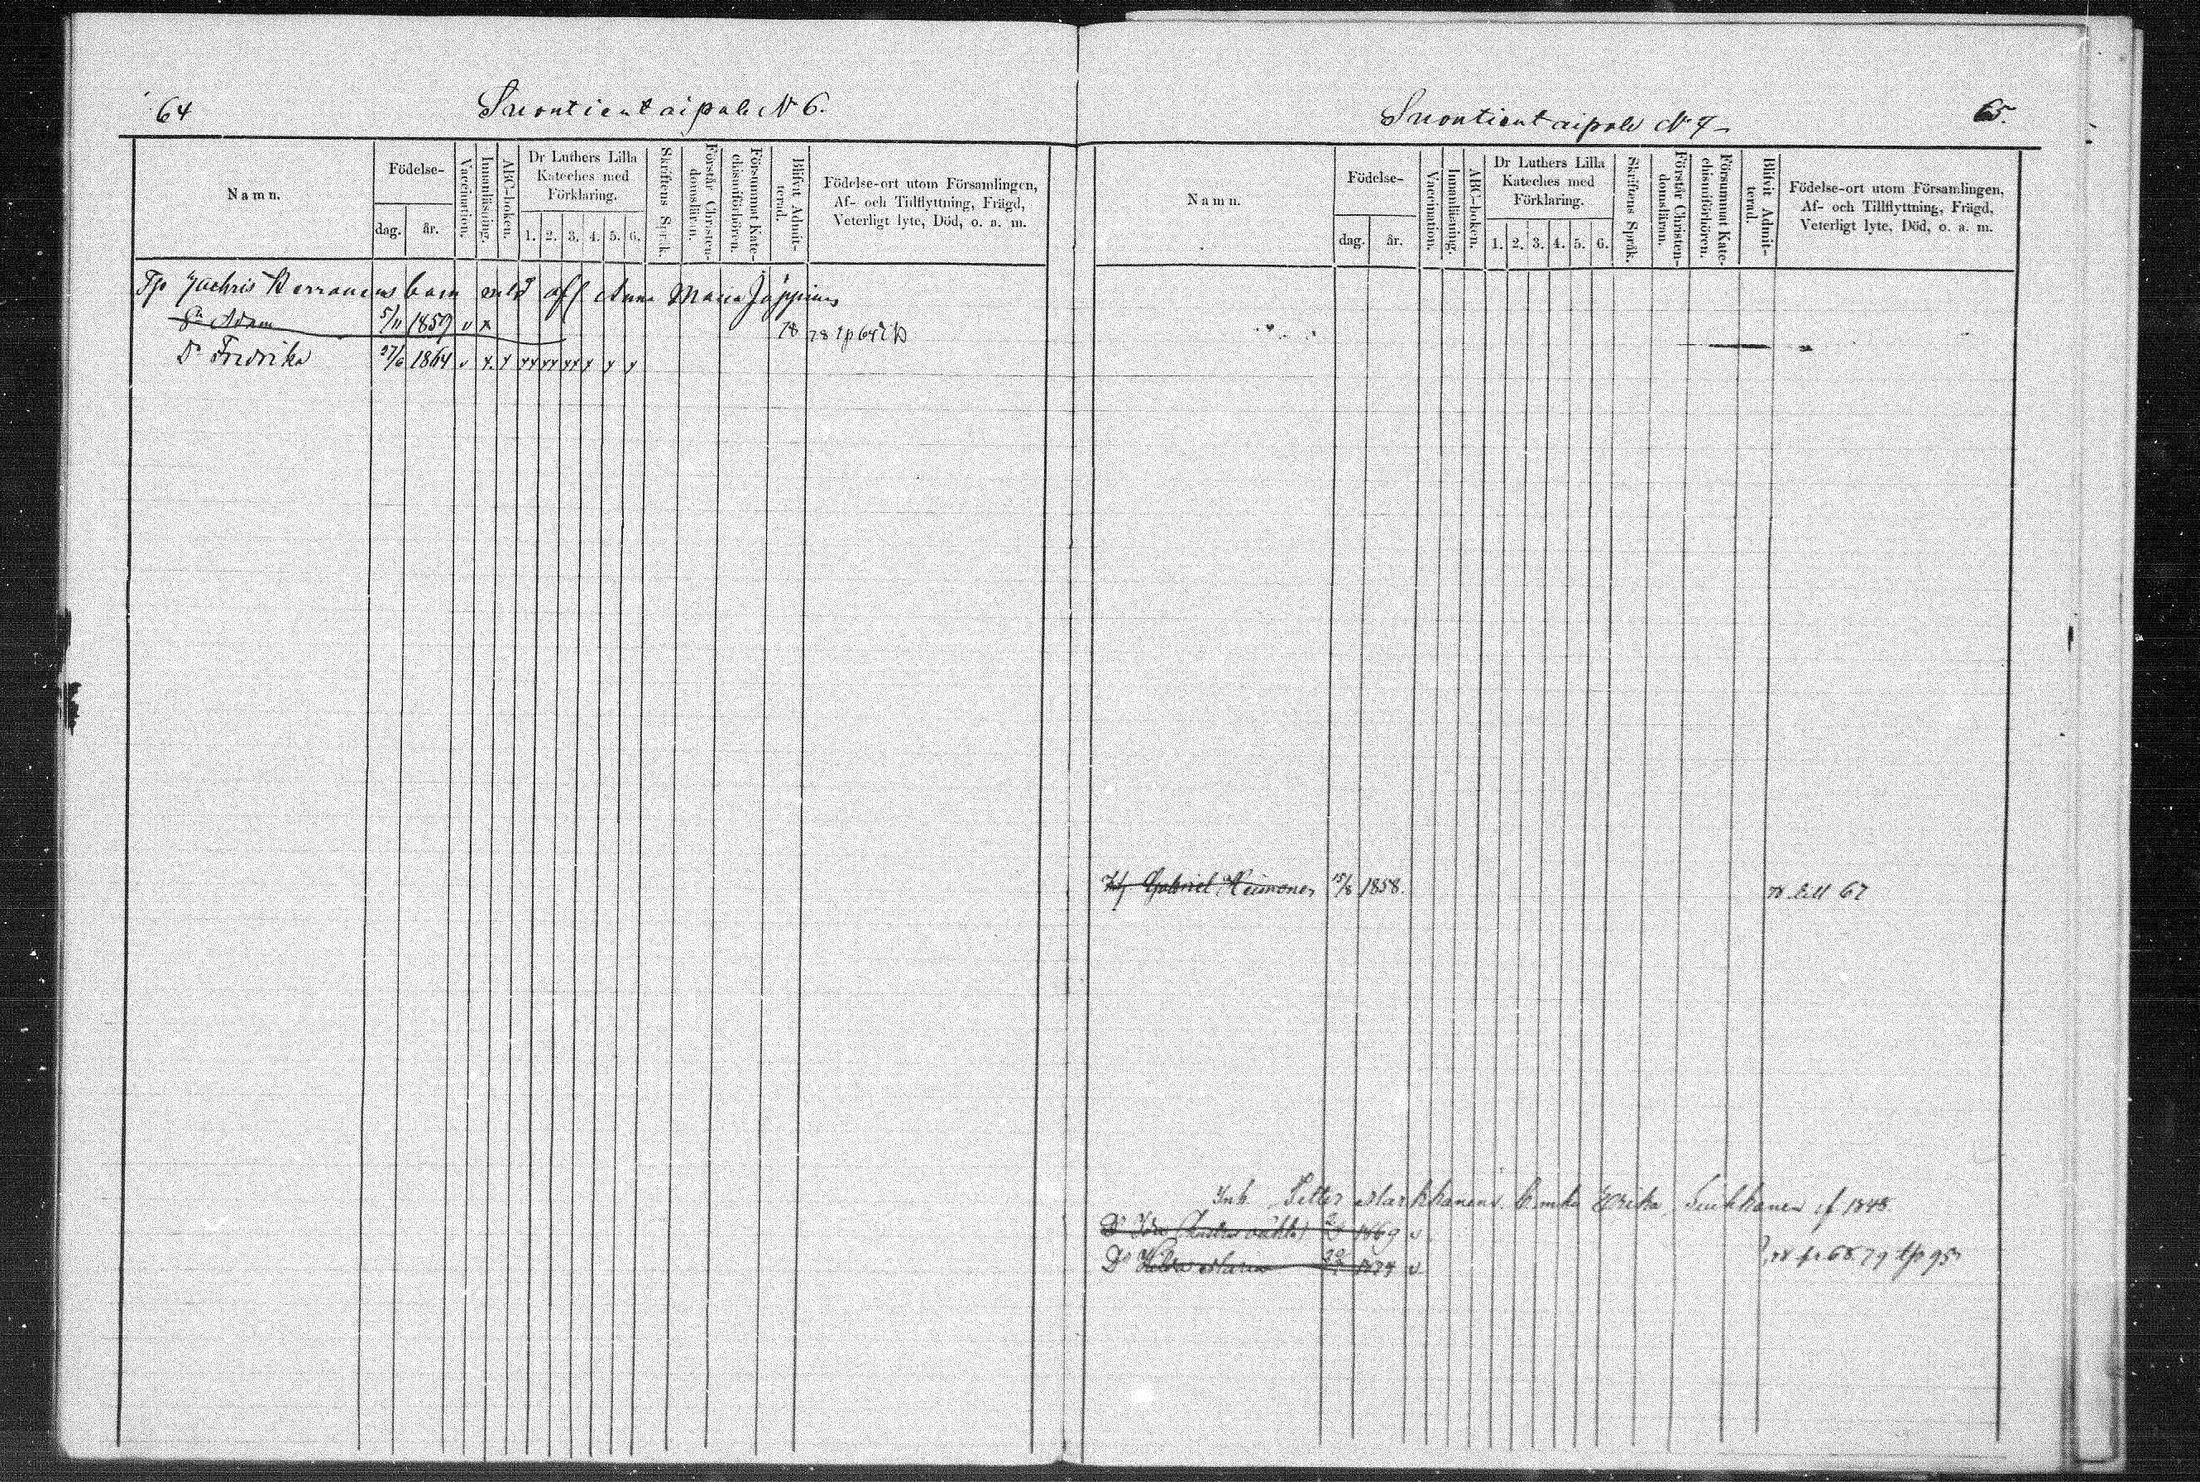 64
Suontientaipale N 6.
Namn.
Födelse-
dag. år.
Vaccination.
Innanläsning.
ABC-boken.
Dr Luthers Lilla
Kateches med
Förklaring.
1. 2. 3. 4. 5. 6.
Skriftens Språk.
Förstår Christen-
domsläran.
Försummat Kate-
chismiförhören.
Blifvit Admit-
terad.
Födelse-ort utom Församlingen,
Af- och Tillflyttning, Frägd,
Veterligt lyte, Död, o. a. m.
Zachris barn Anna Maria
Sn Adam 5/11 1859 v x 78
Dr Fredrika 27/6 1864 v
Suontientaipale N 7
65.
Namn.
Födelse-
dag. år.
Vaccination.
Innanläsning.
ABC-boken.
Dr Luthers Lilla
Kateches med
Förklaring.
1. 2. 3. 4. 5. 6.
Skriftens Språk.
Förstår Christen-
domsläran.
Försummat Kate-
chismiförhören.
Blifvit Admit-
terad.
Födelse-ort utom Församlingen,
Af- och Tillflyttning, Frägd,
Veterligt lyte, Död, o. a. m.
Gabriel 15/8 1858. 67
Inh. Petter Erika f 1848.
Dr 1869 v
Dr Maria v